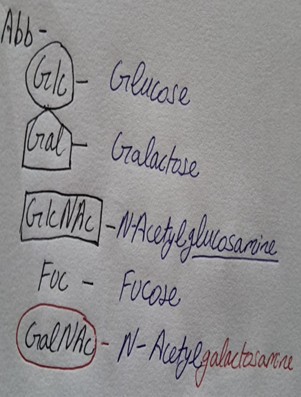 Abb-
Glc - Glucose
Gal - Galactose
GlcNAc - N-Acetylglucosamine
Fuc - Fucose
GalNAc - N-Acetylgalactosamine